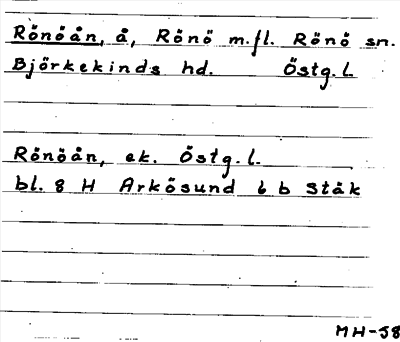 Rönöån, å, Rönö m.fl. Rönö sn.
Björkekinds hd. Östg.l.
Rönöån, ek. Östg.l.
bl. 8 H Arkösund 6 b Ståk
MH-58